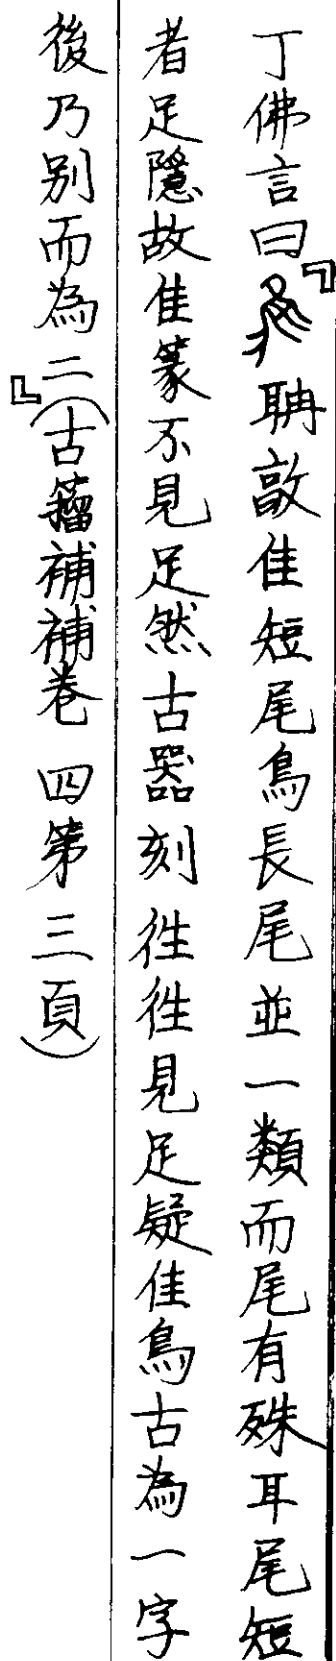 丁佛言曰『聃𣪘隹短尾鳥長尾並一類而尾有殊耳尾短
者足隱故隹篆不見足然古器刻往往見足疑隹鳥古為一字
後乃別而為二』（古籀補補卷四第三頁）